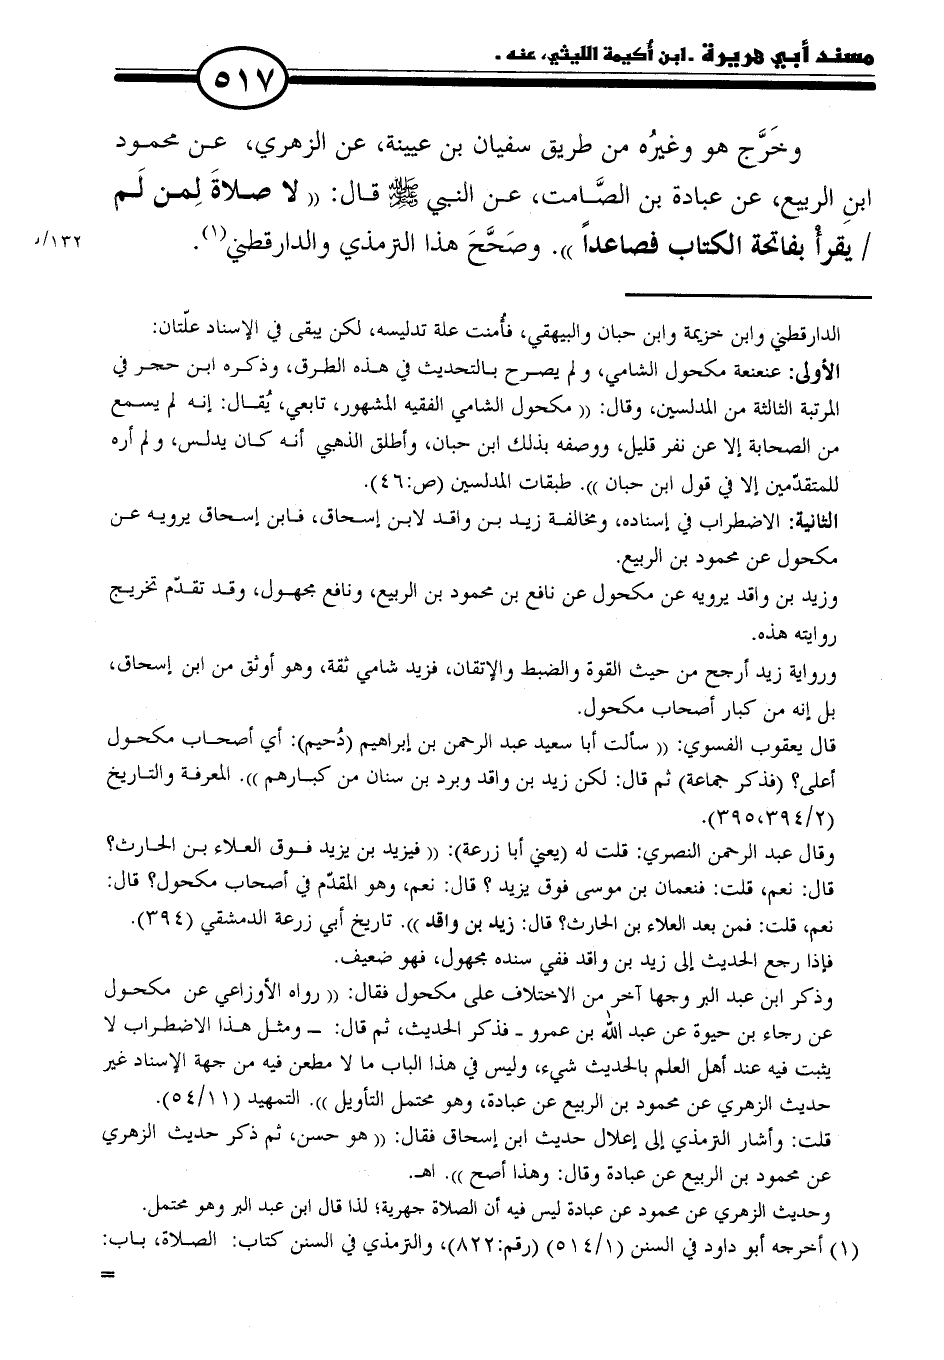 مسند أبي هريرة ـ ابن أكيمة الليثي، عنه ـ
٥١٧
وخَرَّج هو وغيرُه من طريق سفيان بن عيينة، عن الزهري، عـن محمـود
ابنِ الربيع، عن عبادة بن الصَّامت، عـن النبي ﷺ قـال: (( لا صـلاةَ لِمـن لَـم
/ يقرأْ بفاتحة الكتاب فصاعداً )). وصَحَّحَ هذا الترمذي والدارقطني(١).
١٣٢/ر
الدارقطني وابن خزيمة وابن حبان والبيهقي، فأُمنت علة تدليسه، لكن يبقى في الإسناد علّتان:
الأولى: عنعنة مكحول الشامي، و لم يصرح بـالتحديث في هـذه الطرق، وذكـره ابـن حجـر في
المرتبة الثالثة من المدلسين، وقال: (( مكحول الشامي الفقيه المشهور، تابعي، يُقـال: إنـه لم يسـمع
من الصحابة إلا عن نفر قليل، ووصفه بذلك ابن حبان، وأطلق الذهبي أنـه كـان يدلـس، و لم أره
للمتقدّمين إلا في قول ابن حبان )). طبقات المدلسين (ص:٤٦).
الثانية: الاضطراب في إسناده، ومخالفـة زيـد بـن واقـد لابـن إسـحاق، فـابن إسـحاق يرويـه عـن
مكحول عن محمود بن الربيع.
وزيد بن واقد يرويه عن مكحول عن نافع بن محمود بن الربيع، ونافع مجهـول، وقـد تقـدّم تخريـج
روايته هذه.
ورواية زيد أرجح من حيث القوة والضبط والإتقان، فزيد شامي ثقة، وهو أوثق من ابن إسحاق،
بل إنه من كبار أصحاب مكحول.
قال يعقوب الفسوي: (( سألت أبا سعيد عبد الرحمن بن إبراهيم (دُحيم): أي أصحـاب مكحـول
أعلى؟ (فذكر جماعة) ثم قال: لكن زيد بن واقد وبرد بن سنان من كبـارهم )). المعرفـة والتـاريخ
(٣٩٥،٣٩٤/٢).
وقال عبد الرحمن النصري: قلت له (يعني أبا زرعة): (( فيزيد بن يزيد فـوق العـلاء بـن الحـارث؟
قال: نعم، قلت: فنعمان بن موسى فوق يزيد ؟ قال: نعم، وهو المقدّم في أصحاب مكحول؟ قال:
نعم، قلت: فمن بعد العلاء بن الحارث؟ قال: زيد بن واقد )). تاريخ أبي زرعة الدمشقي (٣٩٤).
فإذا رجع الحديث إلى زيد بن واقد ففي سنده مجهول، فهو ضعيف.
وذكر ابن عبد البر وجها آخر من الاختلاف على مكحول فقال: (( رواه الأوزاعي عن مكحـول
عن رجاء بن حيوة عن عبد الله بن عمرو ـ فذكر الحديث، ثم قال: ـ ومثـل هـذا الاضطـراب لا
يثبت فيه عند أهل العلم بالحديث شيء، وليس في هذا الباب ما لا مطعن فيه من جهة الإسناد غير
حديث الزهري عن محمود بن الربيع عن عبادة، وهو محتمل التأويل )). التمهيد (٥٤/١١).
قلت: وأشار الترمذي إلى إعلال حديث ابن إسحاق فقال: (( هو حسن، ثم ذكر حديث الزهري
عن محمود بن الربيع عن عبادة وقال: وهذا أصح )). اهـ.
وحديث الزهري عن محمود عن عبادة ليس فيه أن الصلاة جهرية؛ لذا قال ابن عبد البر وهو محتمل.
(١) أخرجه أبو داود في السنن (٥١٤/١) (رقم:٨٢٢)، والترمذي في السنن كتاب: الصـلاة، بـاب:
=